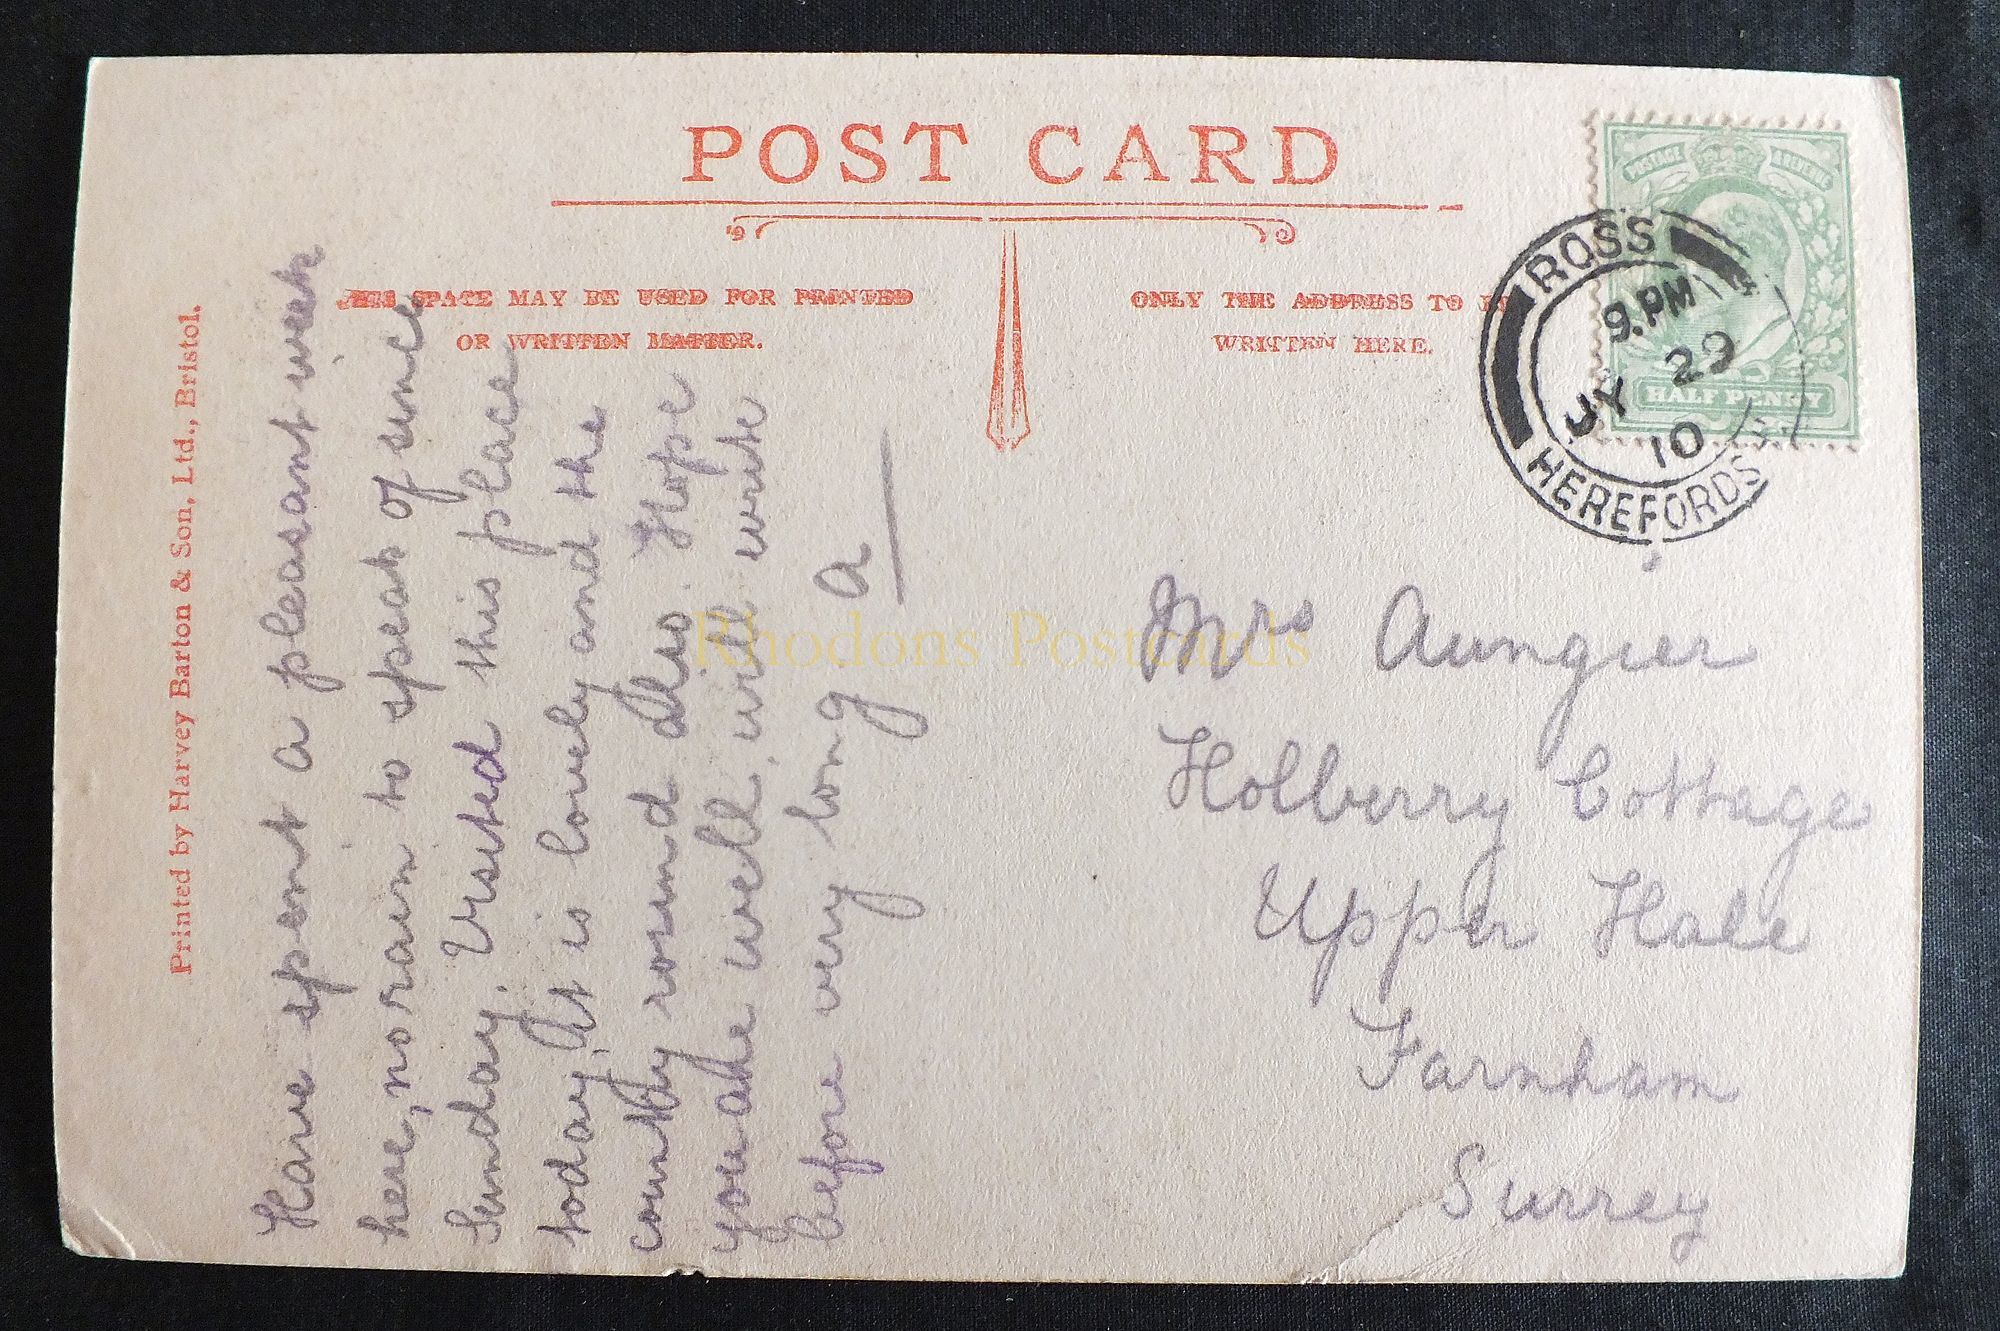 POST CARD
THIS SPACE MAY BE USED FOR PRINTED
OR WRITTEN MATTER.
ONLY THE ADDRESS TO BE
WRITTEN HERE.
POSTAGE REVENUE
HALF PENNY
ROSS
9. PM
JY 29
10
HEREFORDS
Printed by Harvey Barton & Son, Ltd., Bristol.
Have spent a pleasant week
here, no rain to speak of since
Sunday. Visited this place
today, It is lovely and the
country round also. Hope
you are well, will write
before very long A
Mrs Aungier
Holberry Cottage
Upper Hale
Farnham
Surrey
Rhodons Postcards